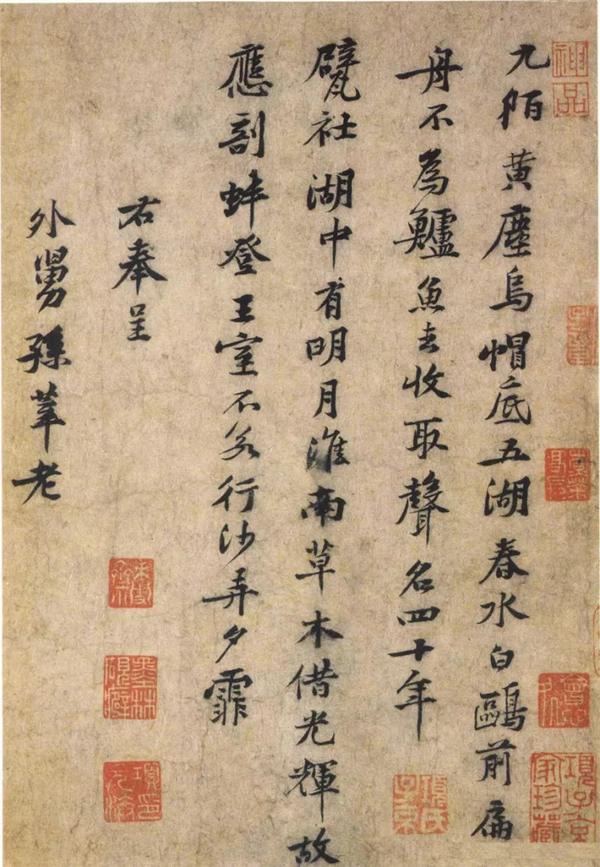 神品
項子京家珍藏
九陌黄塵烏帽底五湖春水白鷗前扁
舟不為鱸魚去收取聲名四十年
項氏子京
甓社湖中有明月淮南草木借光輝故
應剖蚌登王室不若行沙弄夕霏
右奉呈
外舅孫莘老